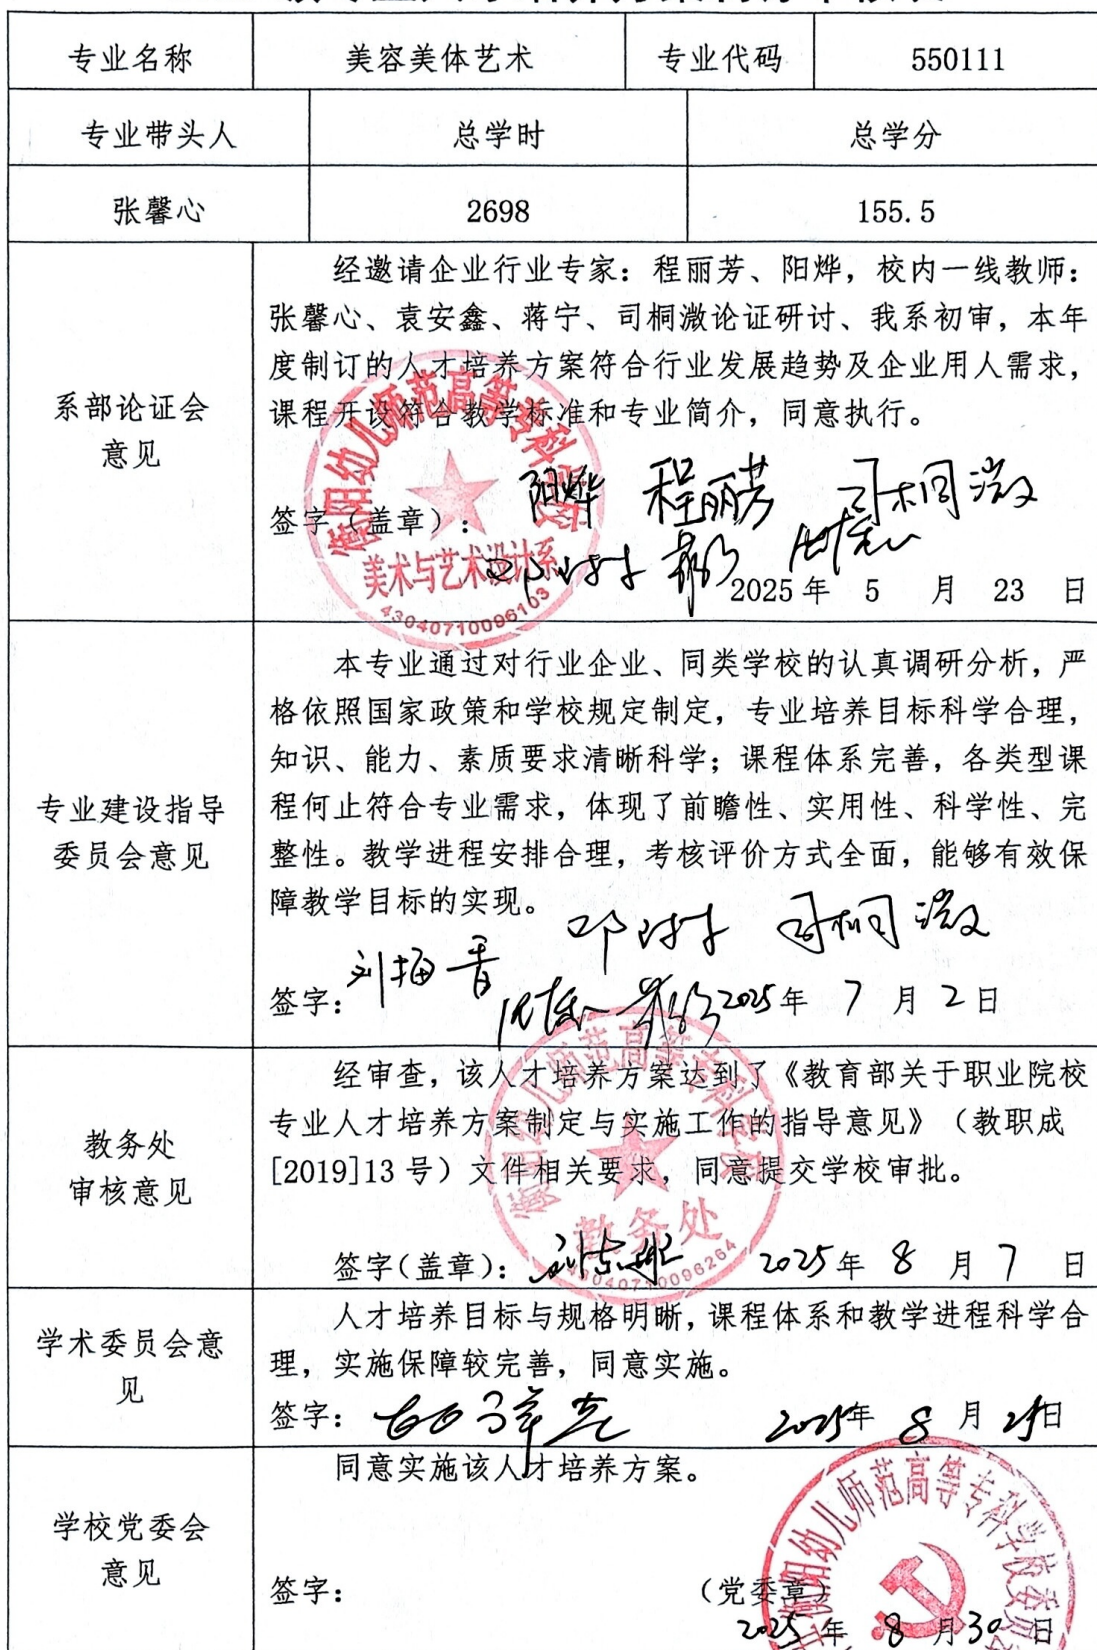 专业名称 美容美体艺术 专业代码 550111
专业带头人 总学时 总学分
张馨心 2698 155.5
系部论证会
意见
经邀请企业行业专家：程丽芳、阳烨，校内一线教师：
张馨心、袁安鑫、蒋宁、司桐溦论证研讨、我系初审，本年
度制订的人才培养方案符合行业发展趋势及企业用人需求，
课程开设符合教学标准和专业简介，同意执行。
签字（盖章）： 阳烨 程丽芳 司桐溦
2025年 5 月 23 日
衡阳幼儿师范高等专科学校
美术与艺术设计系
43040710096103
专业建设指导
委员会意见
本专业通过对行业企业、同类学校的认真调研分析，严
格依照国家政策和学校规定制定，专业培养目标科学合理，
知识、能力、素质要求清晰科学；课程体系完善，各类型课
程何止符合专业需求，体现了前瞻性、实用性、科学性、完
整性。教学进程安排合理，考核评价方式全面，能够有效保
障教学目标的实现。
司桐溦
签字： 2025年 7 月 2 日
教务处
审核意见
经审查，该人才培养方案达到了《教育部关于职业院校
专业人才培养方案制定与实施工作的指导意见》（教职成
[2019]13号）文件相关要求，同意提交学校审批。
签字（盖章）： 2025年 8 月 7 日
衡阳幼儿师范高等专科学校
教务处
43040710096264
学术委员会意
见
人才培养目标与规格明晰，课程体系和教学进程科学合
理，实施保障较完善，同意实施。
签字： 2025年 8 月 日
学校党委会
意见
同意实施该人才培养方案。
签字： （党委章）
2025年 8 月 30 日
衡阳幼儿师范高等专科学校委员